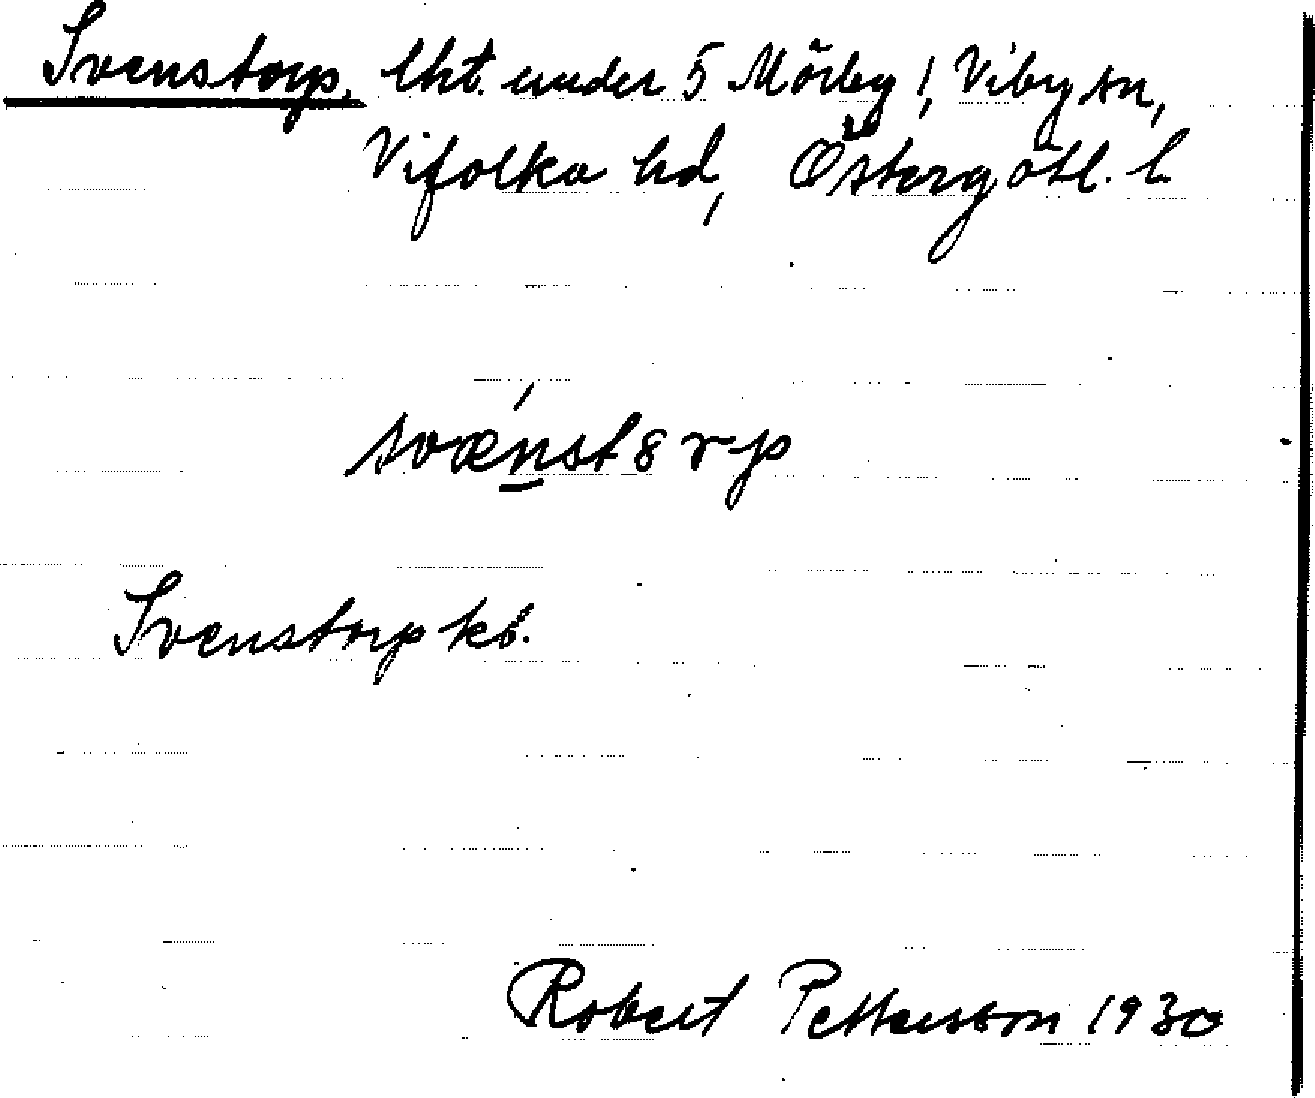 Svenstorp, lht. under 5 Mörby!, Viby sn,
Vifolka hd, Östergötl. l.
svænst8rp
Svenstorp kb.
Robert Petterson 1930